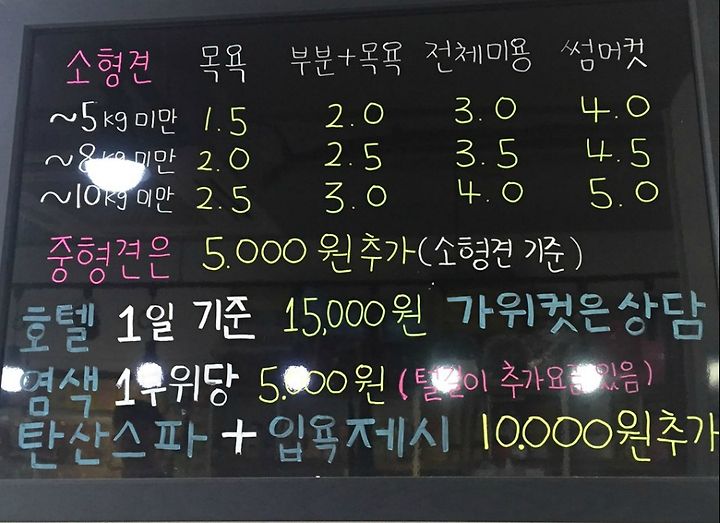 소형견 목욕 부분+목욕 전체미용 썸머컷
~5kg미만 1.5 2.0 3.0 4.0
~8kg미만 2.0 2.5 3.5 4.5
~10kg미만 2.5 3.0 4.0 5.0
중형견은 5.000원추가(소형견 기준)
호텔 1일 기준 15,000원 가위컷은상담
염색 1부위당 5.000원 (털길이 추가요금있음)
탄산스파+입욕제시 10.000원추가